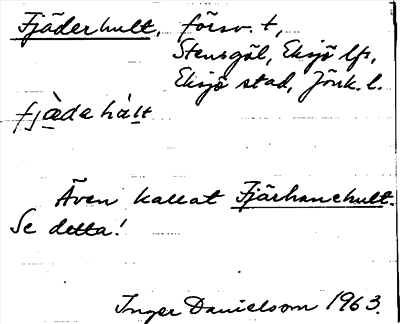 Fjäderhult, försv. t,
Stensgöl, Eksjö lfs,
Eksjö stad, Jönk. l.
fjàdehàlt
Även kallat Fjärhanehult.
Se detta!
Inger Danielsson 1963.